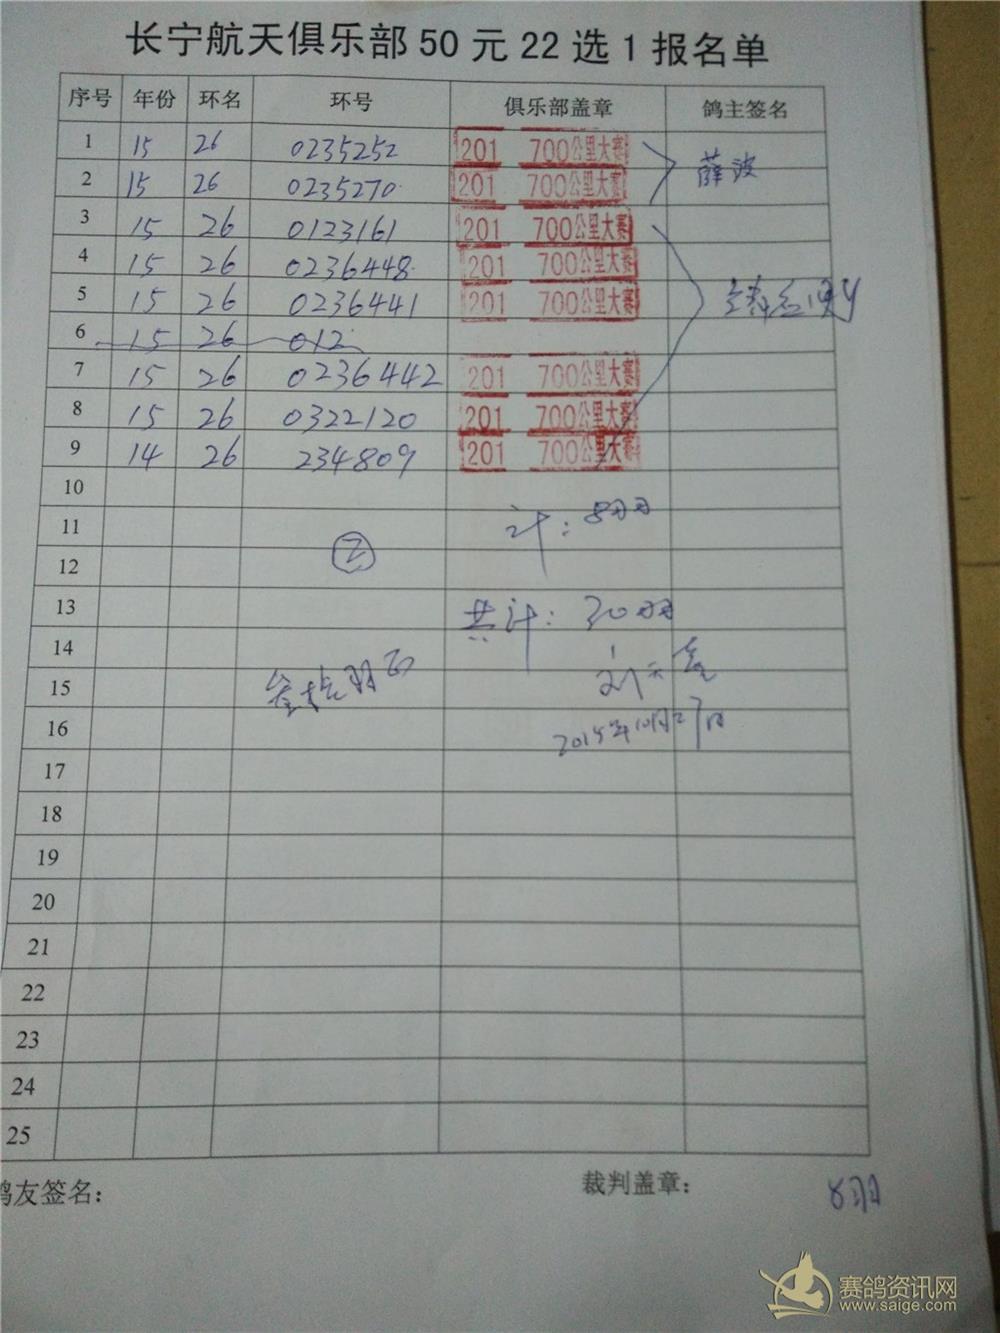 长宁航天俱乐部50元22选1报名单
序号 年份 环名 环号 俱乐部盖章 鸽主签名
1 15 26 0235252 201 700公里大赛 薛波
2 15 26 0235270 201 700公里大赛
3 15 26 0123161 201 700公里大赛
4 15 26 0236448 201 700公里大赛
5 15 26 0236441 201 700公里大赛
6 15 26 012
7 15 26 0236442 201 700公里大赛
8 15 26 0322120 201 700公里大赛
9 14 26 234809 201 700公里大赛
10
11 计：8羽
12 ②
13 共计：30羽
14
15
16 2015年10月27日
17
18
19
20
21
22
23
24
25
鸽友签名： 裁判盖章： 8羽
赛鸽资讯网
www.saige.com